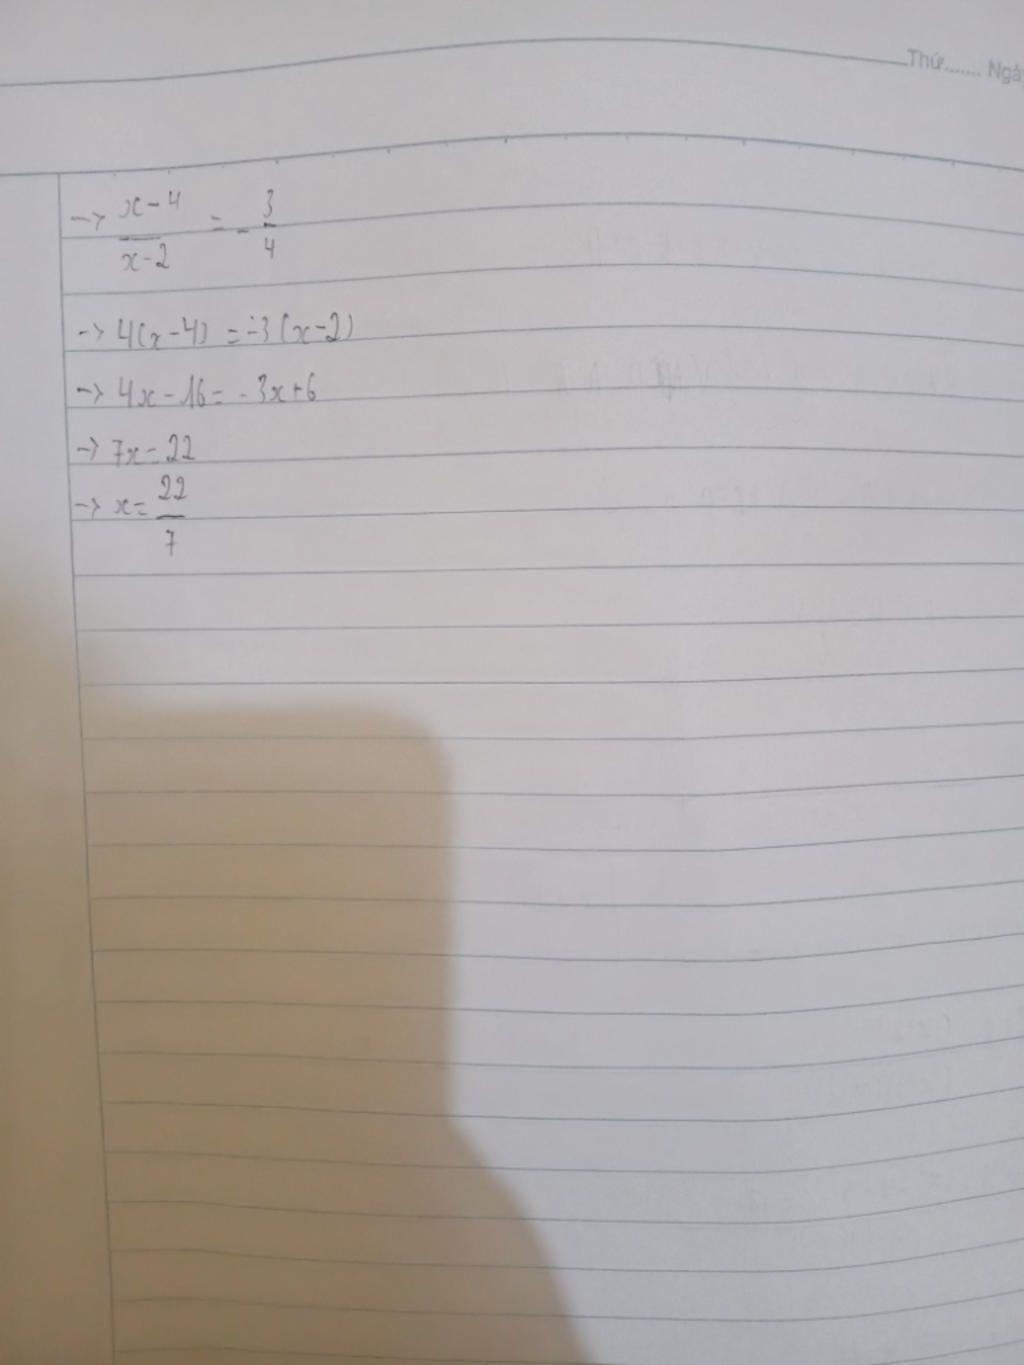 Thứ....... Ngày
-> x-4/x-2 = -3/4
-> 4(x-4) = -3(x-2)
-> 4x-16 = -3x+6
-> 7x = 22
-> x = 22/7